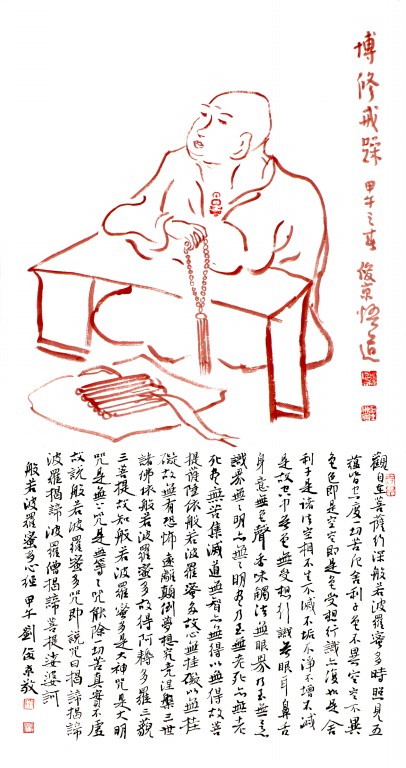 博修戒躁
甲午之春 俊京悟道
觀自在菩薩行深般若波羅蜜多時照見五
蘊皆空度一切苦厄舍利子色不異空空不異
色色即是空空即是色受想行識亦復如是舍
利子是諸法空相不生不滅不垢不淨不增不減
是故空中無色無受想行識無眼耳鼻舌
身意無色聲香味觸法無眼界乃至無意
識界無無明亦無無明盡乃至無老死亦無老
死盡無苦集滅道無智亦無得以無所得故菩
提薩陲依般若波羅蜜多故心無挂礙以無挂
礙故無有恐怖遠離顛倒夢想究竟涅槃三世
諸佛依般若波羅蜜多故得阿耨多羅三藐
三菩提故知般若波羅蜜多是大神咒是大明
咒是無上咒是無等等咒能除一切苦真實不虛
故說般若波羅蜜多咒即說咒曰揭諦揭諦
波羅揭諦波羅僧揭諦菩提娑婆訶
般若波羅蜜多心經 甲午 劉俊京敬